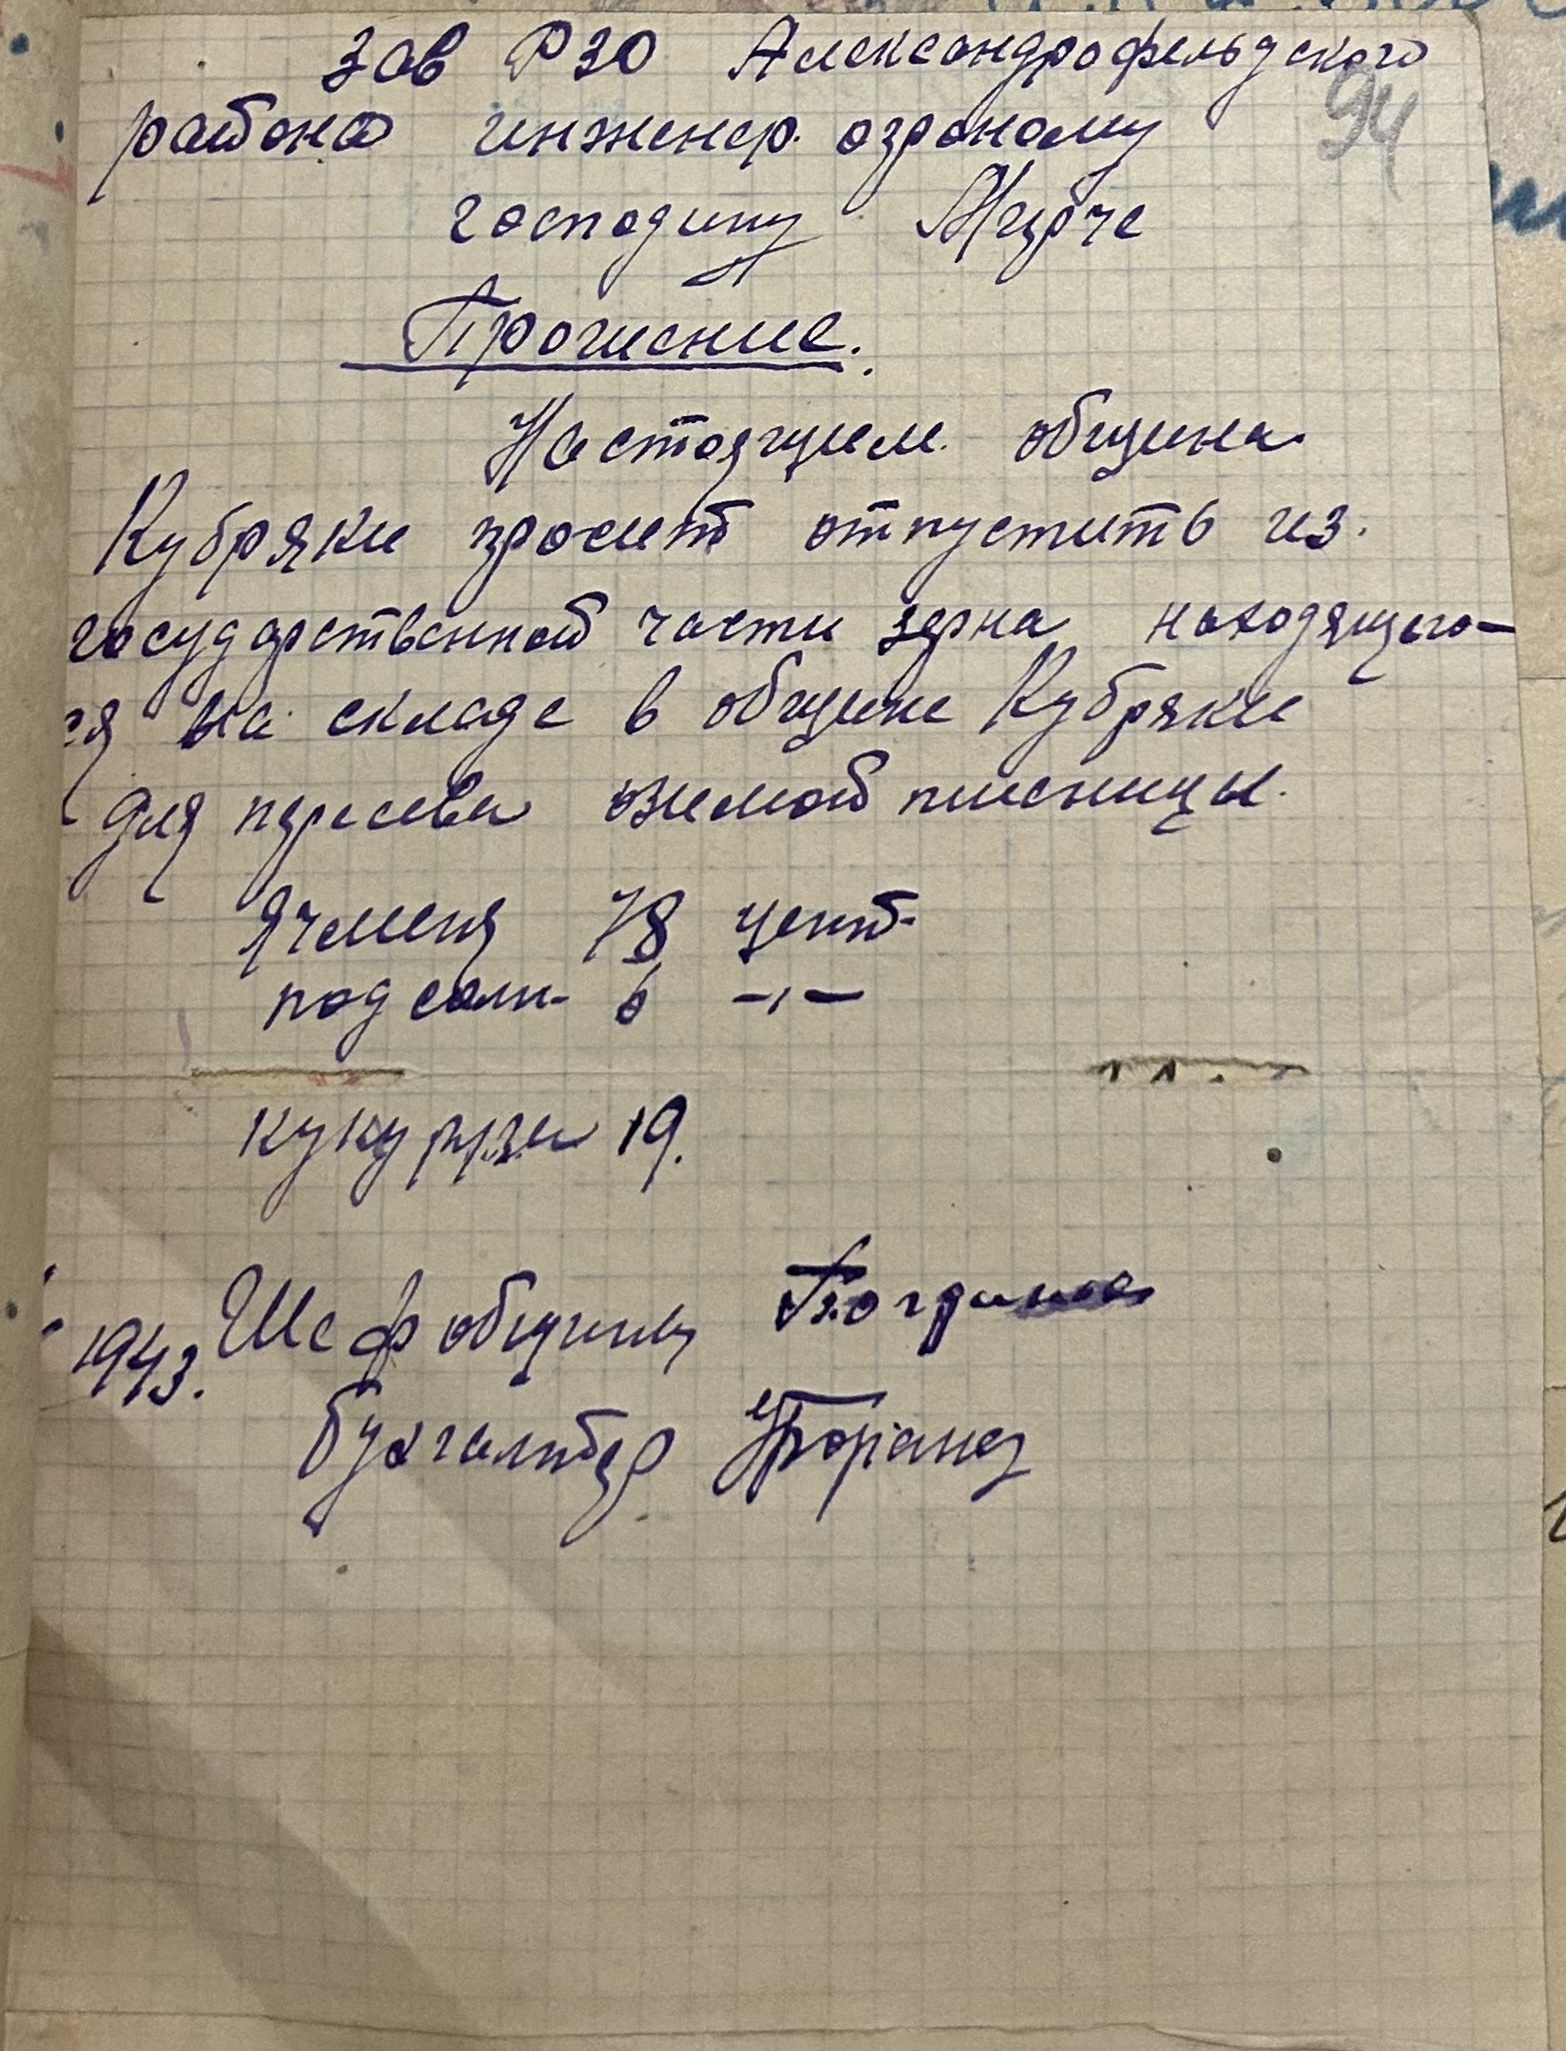 Зав РЗО Александрофельдского
94
района инженер. агроному
господину Мирче
Прошение.
Настоящем община
Кубряки просит отпустить из
государственной части зерна находящего-
ся на складе в общине Кубряки
для пересева озимой пшеницы.
Ячменя 78 цент.
подсолн- 6 -"-
кукурузы 19.
Шеф общины
1943.
бухгалтер